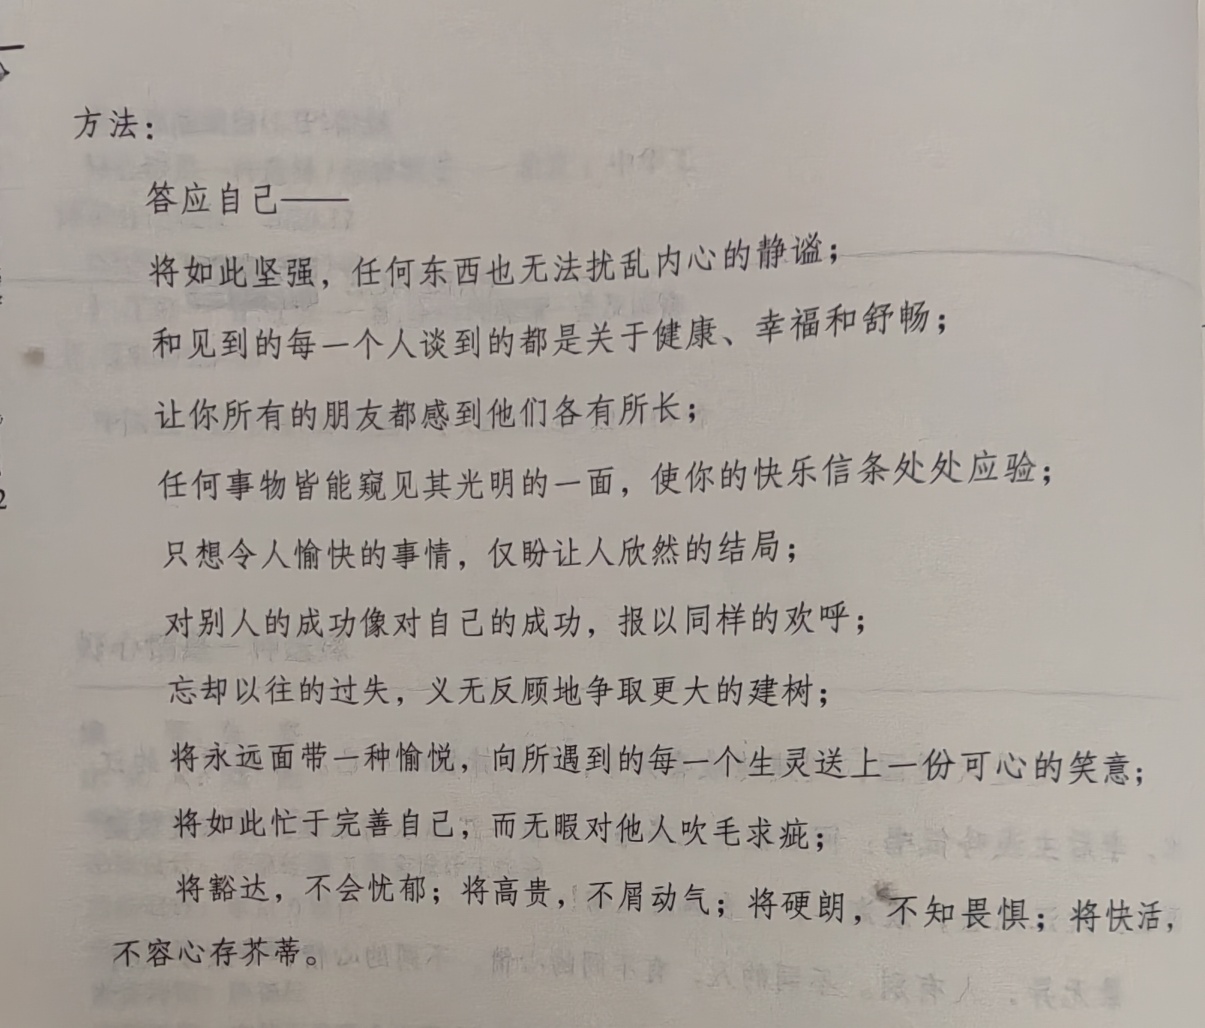 方法：
答应自己——
将如此坚强，任何东西也无法扰乱内心的静谧；
和见到的每一个人谈到的都是关于健康、幸福和舒畅；
让你所有的朋友都感到他们各有所长；
任何事物皆能窥见其光明的一面，使你的快乐信条处处应验；
只想令人愉快的事情，仅盼让人欣然的结局；
对别人的成功像对自己的成功，报以同样的欢呼；
忘却以往的过失，义无反顾地争取更大的建树；
将永远面带一种愉悦，向所遇到的每一个生灵送上一份可心的笑意；
将如此忙于完善自己，而无暇对他人吹毛求疵；
将豁达，不会忧郁；将高贵，不屑动气；将硬朗，不知畏惧；将快活，
不容心存芥蒂。